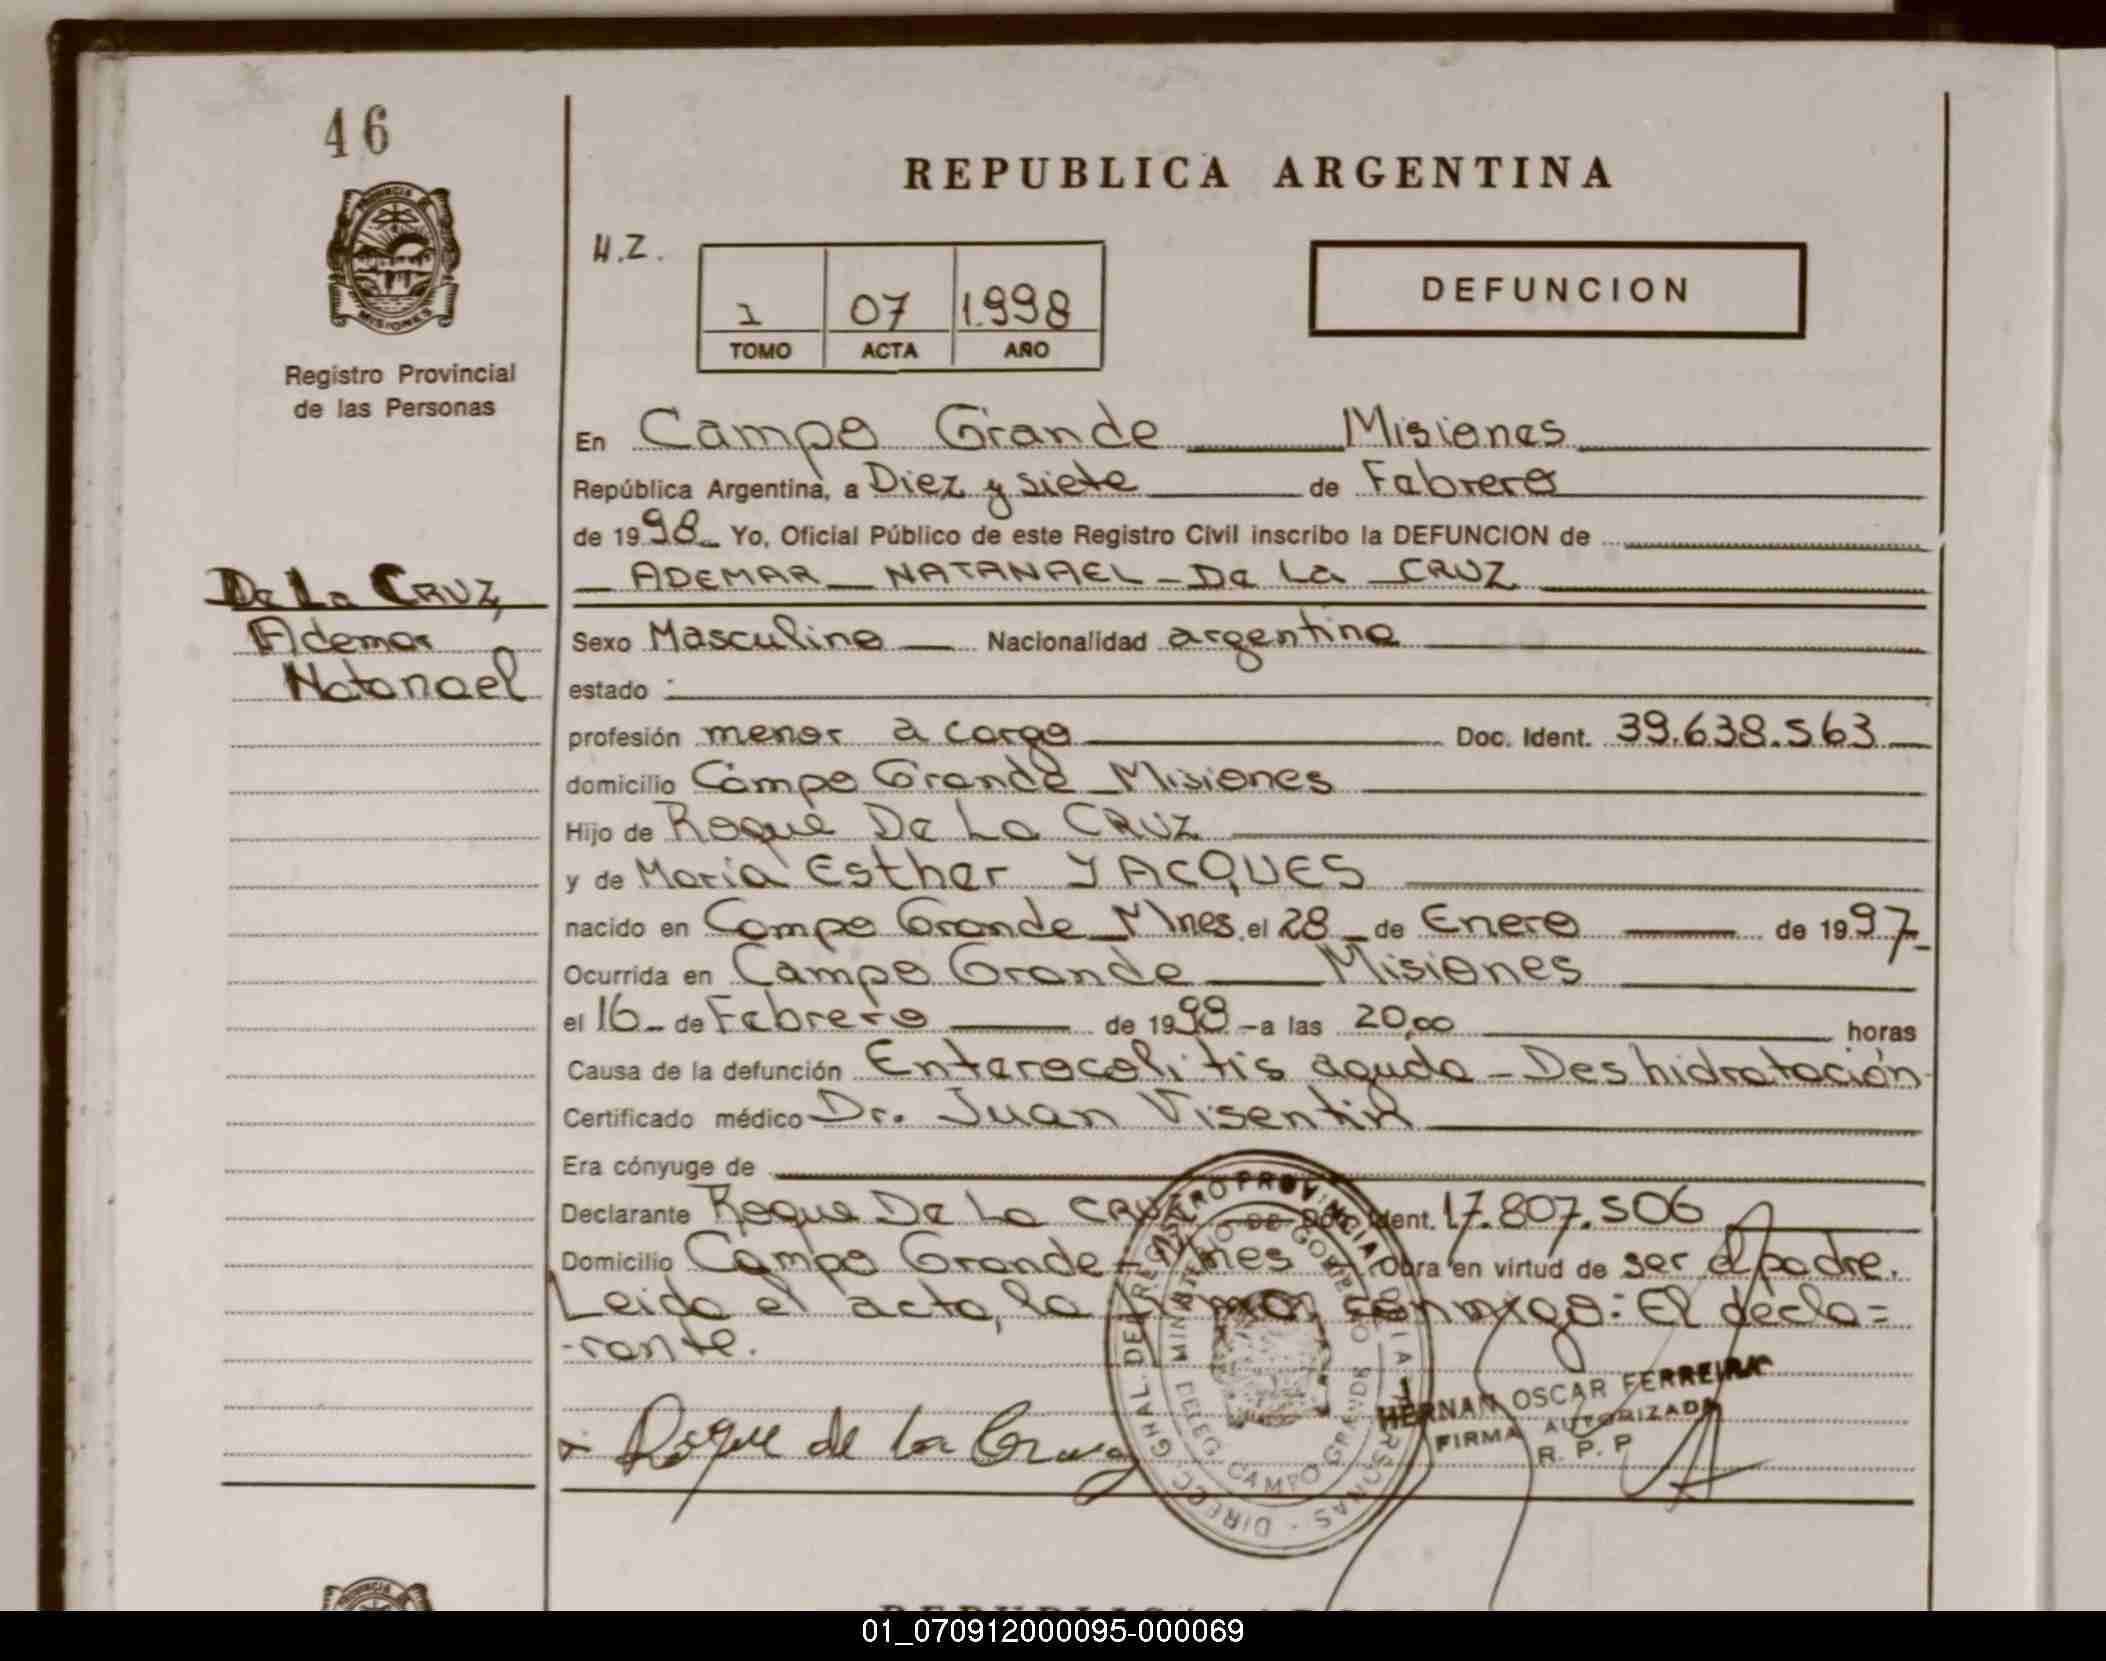 46
PROVINCIA DE
MISIONES
Registro Provincial
de las Personas
De La CRUZ,
Ademar
Natanael
REPUBLICA ARGENTINA
H.Z.
1 07 1.998
TOMO ACTA AÑO
DEFUNCION
En Campo Grande Misiones
República Argentina, a Diez y siete de Febrero
de 1998 Yo, Oficial Público de este Registro Civil inscribo la DEFUNCION de
ADEMAR NATANAEL - De La CRUZ
Sexo Masculino Nacionalidad argentino
estado
profesión menor a cargo Doc. Ident. 39.638.563
domicilio Campo Grande Misiones
Hijo de Roque De La CRUZ
y de María Esther YACQUES
nacido en Campo Grande Mnes. el 28 de Enero de 1997
Ocurrida en Campo Grande Misiones
el 16 de Febrero de 1998 a las 20,00 horas
Causa de la defunción Enterocolitis aguda - Deshidratación
Certificado médico Dr. Juan Visentin
Era cónyuge de
Declarante Roque De La CRUZ Doc. Ident. 17.807.506
Domicilio Campo Grande - Mnes Obra en virtud de ser el padre.
Leida el acta, la firman conmigo: El decla=
-rante.
Roque de la Cruz
HERNAN OSCAR FERREIRA
FIRMA AUTORIZADA
R. P. P
DIRECC. GRAL. DEL REGISTRO PROVINCIAL DE LAS PERSONAS
MINISTERIO DE GOBIERNO
DELEG. CAMPO GRANDE
01_070912000095-000069